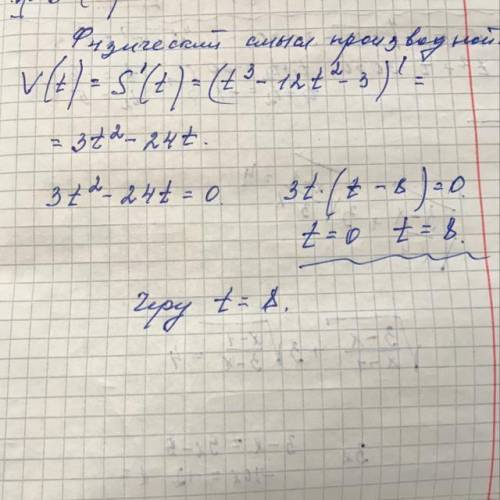 Физический смысл производной.
V(t) = S'(t) = (t³ - 12t² - 3)' =
= 3t² - 24t.
3t² - 24t = 0. 3t·(t - 8) = 0.
t = 0 t = 8.
t = 8.